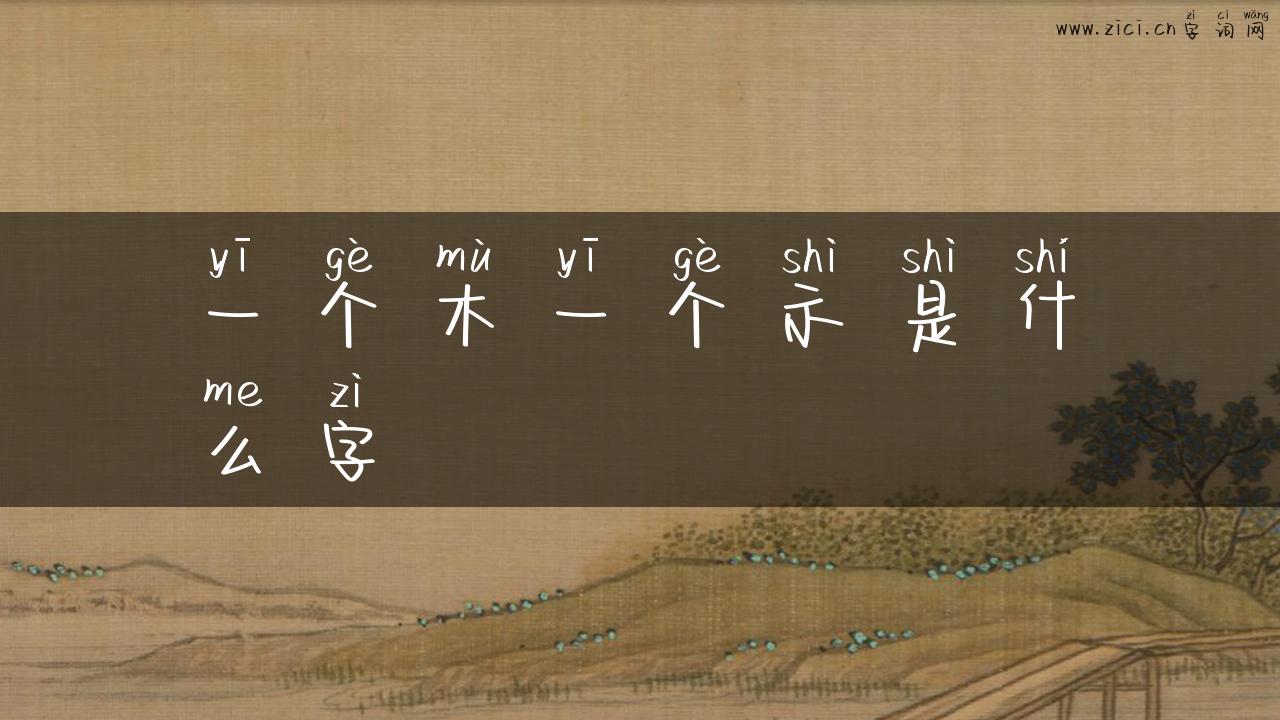 zì cí wǎng
www.zici.cn 字 词 网
yī gè mù yī gè shì shì shí
一 个 木 一 个 示 是 什
me zì
么 字